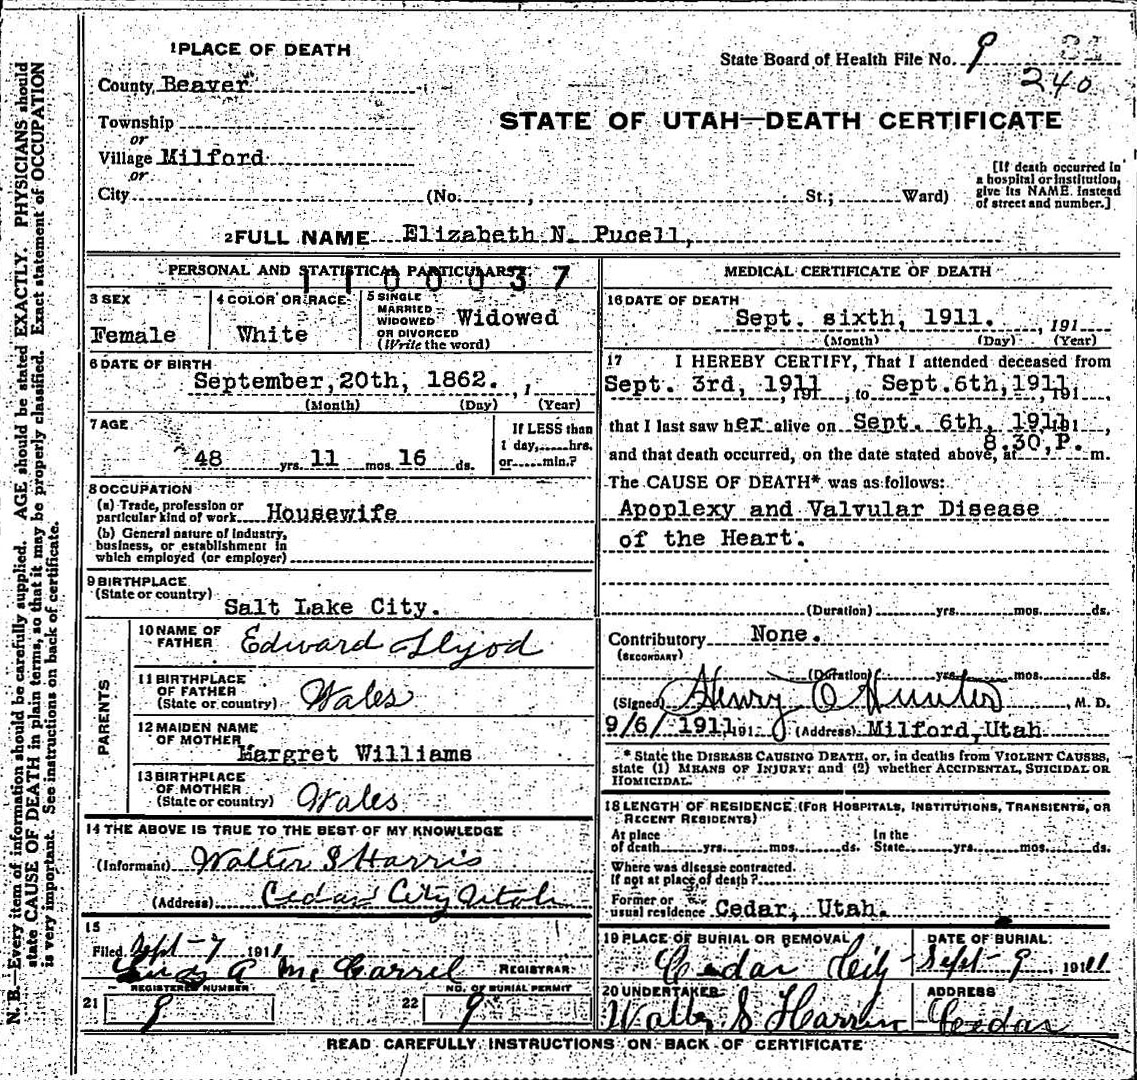 N. B. Every item of information should be carefully supplied. AGE should be stated EXACTLY. PHYSICIANS should
state CAUSE OF DEATH in plain terms, so that it may be properly classified. Exact statement of OCCUPATION
is very important. See instructions on back of certificate.
1 PLACE OF DEATH
State Board of Health File No. 9
240
County Beaver
STATE OF UTAH—DEATH CERTIFICATE
Township
or
Village Milford
or
City (No. , St.; Ward)
[If death occurred in
a hospital or institution,
give its NAME instead
of street and number.]
2 FULL NAME Elizabeth N. Pucell,
PERSONAL AND STATISTICAL PARTICULARS
1100037
3 SEX
Female
4 COLOR OR RACE
White
5 SINGLE
MARRIED
WIDOWED
OR DIVORCED
(Write the word)
Widowed
6 DATE OF BIRTH
September, 20th, 1862. ,
(Month) (Day) (Year)
7 AGE
48 yrs. 11 mos. 16 ds.
If LESS than
1 day, hrs.
or min.?
8 OCCUPATION
(a) Trade, profession or
particular kind of work Housewife
(b) General nature of industry,
business, or establishment in
which employed (or employer)
9 BIRTHPLACE
(State or country)
Salt Lake City.
PARENTS
10 NAME OF
FATHER
Edward Llyod
11 BIRTHPLACE
OF FATHER
(State or country)
Wales
12 MAIDEN NAME
OF MOTHER
Margret Williams
13 BIRTHPLACE
OF MOTHER
(State or country)
Wales
14 THE ABOVE IS TRUE TO THE BEST OF MY KNOWLEDGE
(Informant) Walter S Harris
(Address) Cedar City Utah
15
Filed Sept-7 1911
A McGarrel REGISTRAR
REGISTERED NUMBER
21 9
NO. OF BURIAL PERMIT
22 9
MEDICAL CERTIFICATE OF DEATH
16 DATE OF DEATH
Sept. sixth, 1911. , 191
(Month) (Day) (Year)
17 I HEREBY CERTIFY, That I attended deceased from
Sept. 3rd, 1911, 191 , to Sept.6th,1911, 191 ,
that I last saw her alive on Sept. 6th, 1911, 191 ,
and that death occurred, on the date stated above, at 8.30,P. m.
The CAUSE OF DEATH* was as follows:
Apoplexy and Valvular Disease
of the Heart.
(Duration) yrs. mos. ds.
Contributory None.
(SECONDARY)
(Duration) yrs. mos. ds.
(Signed) Henry O Hunter, M. D.
9/6/ 1911 191 (Address) Milford, Utah
* State the DISEASE CAUSING DEATH, or, in deaths from VIOLENT CAUSES,
state (1) MEANS OF INJURY; and (2) whether ACCIDENTAL, SUICIDAL OR
HOMICIDAL.
18 LENGTH OF RESIDENCE (FOR HOSPITALS, INSTITUTIONS, TRANSIENTS, OR
RECENT RESIDENTS)
At place
of death yrs. mos. ds.
In the
State yrs. mos. ds.
Where was disease contracted.
If not at place of death?
Former or
usual residence Cedar, Utah.
19 PLACE OF BURIAL OR REMOVAL
Cedar City
DATE OF BURIAL:
Sept-9 1911
20 UNDERTAKER
Walter S Harris
ADDRESS
Cedar
READ CAREFULLY INSTRUCTIONS ON BACK OF CERTIFICATE